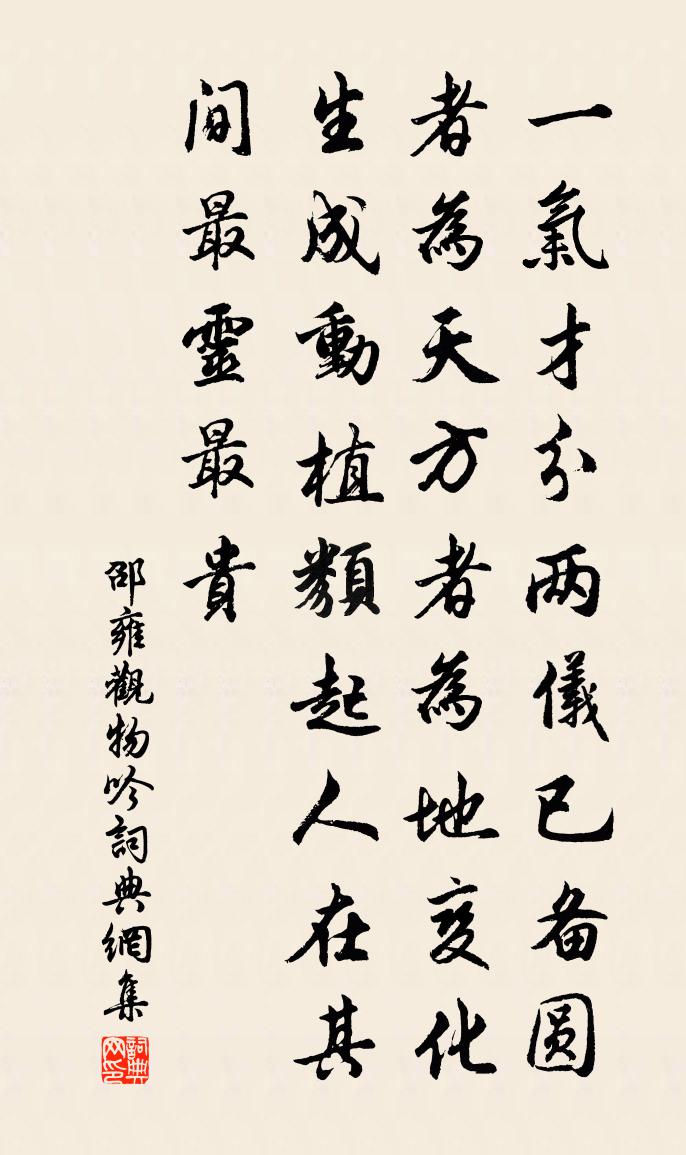 一氣才分两儀已备圆
者為天方者為地变化
生成動植類起人在其
间最靈最貴
邵雍觀物吟詞典網集
詞典网印